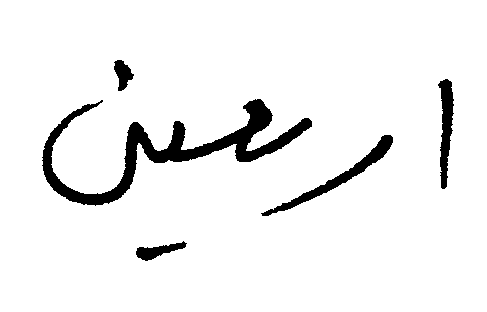 اربعين